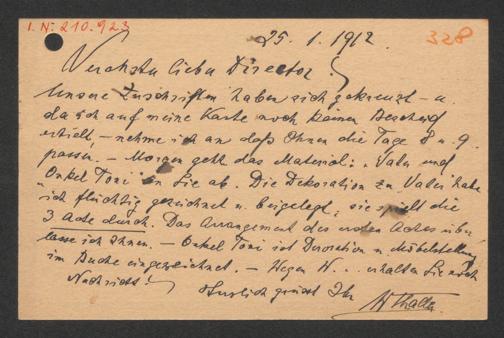 I. N: 210.923
25. 1. 1912.
328
Verehrter lieber Director!
Unsere Zuschriften haben sich gekreuzt – u.
da ich auf meine Karte noch keinen Bescheid
erhielt, – nehme ich an daß Ihnen die Tage 8 u. 9.
passen. – Morgen geht das Material: "Vater und
"Onkel Toni" an Sie ab. Die Dekoration zu Vater habe
ich flüchtig gezeichnet u. beigelegt, sie spielt die
3 Acte durch. Das Arrangement des ersten Actes über-
lasse ich Ihnen. – Onkel Toni ist Decoration u. Möbelstellung
im Buche eingezeichnet. – Wegen W... erhalten Sie noch
Nachricht!
Herzlich grüsst Ihr